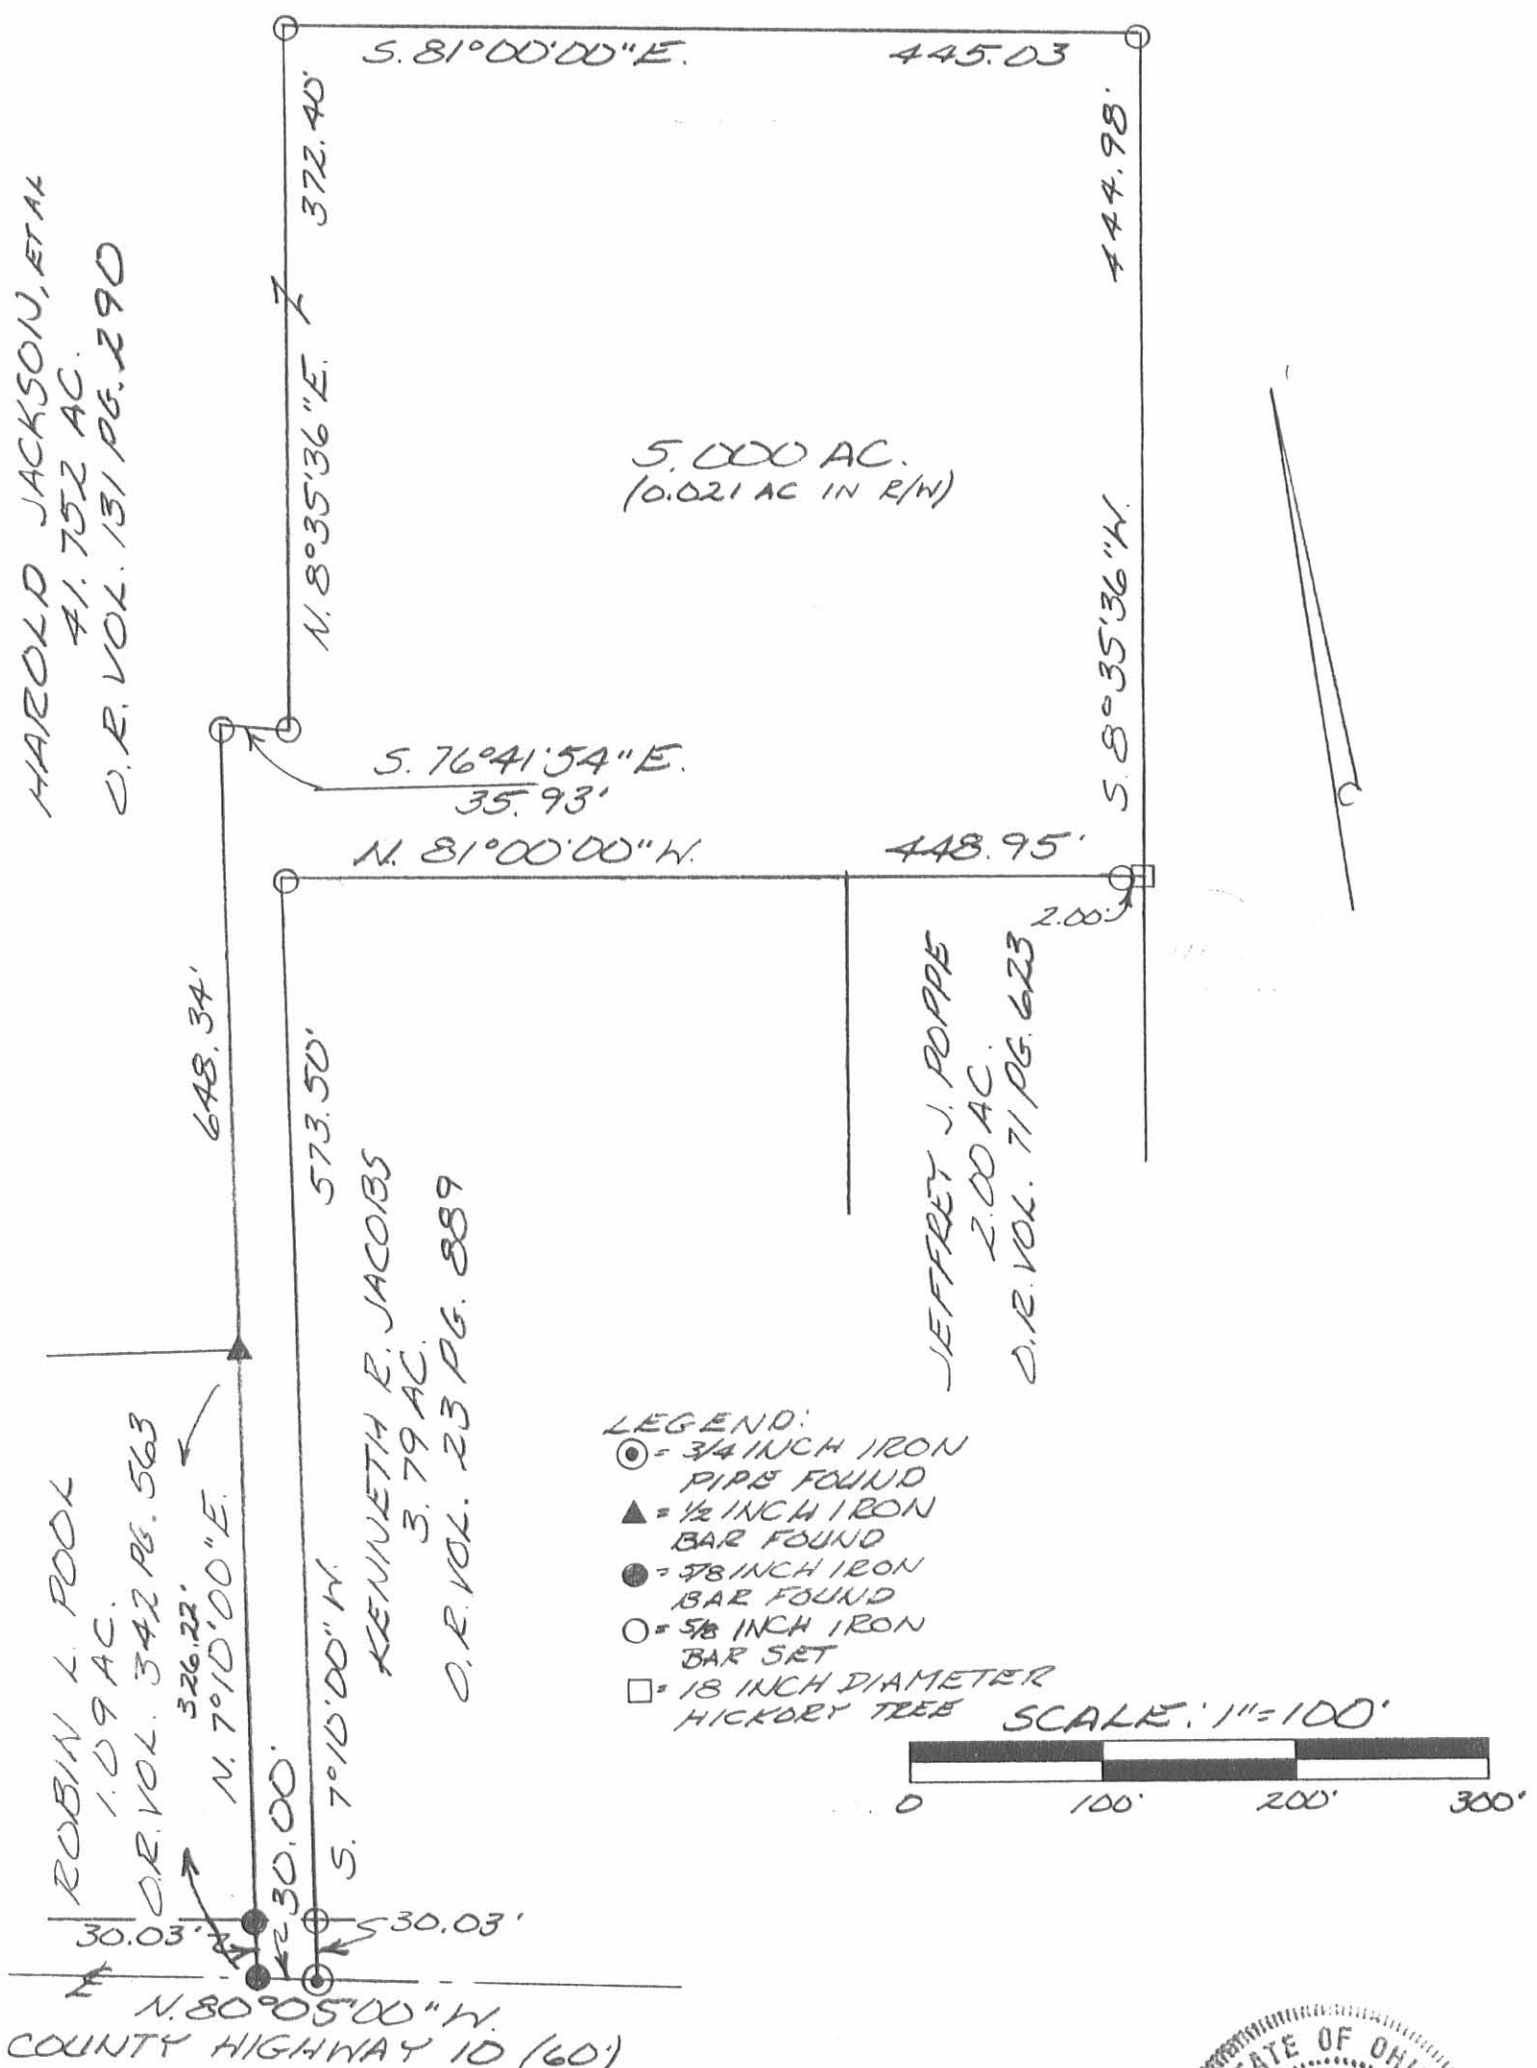 S. 81°00'00"E. 445.03
372.40'
444.98'
HAROLD JACKSON, ET AL
41.752 AC.
O.R. VOL. 131 PG. 290
N. 8°35'36"E.
5.000 AC.
(0.021 AC IN R/W)
S. 8°35'36"W.
S. 76°41'54"E.
35.93'
N. 81°00'00"W. 448.95'
2.00'
648.34'
573.50'
KENNETH R. JACOBS
3.79 AC.
O.R. VOL. 23 PG. 889
JEFFREY J. POPPE
2.00 AC.
O.R. VOL. 71 PG. 623
ROBIN L. POOL
1.09 AC.
O.R. VOL. 342 PG. 563
326.22'
N. 7°10'00"E.
30.00'
S. 7°10'00"W.
LEGEND:
= 3/4 INCH IRON
PIPE FOUND
= 1/2 INCH IRON
BAR FOUND
= 5/8 INCH IRON
BAR FOUND
= 5/8 INCH IRON
BAR SET
= 18 INCH DIAMETER
HICKORY TREE
SCALE: 1"=100'
0 100' 200' 300'
30.03' 30.03'
N. 80°05'00"W.
COUNTY HIGHWAY 10 (60')
STATE OF